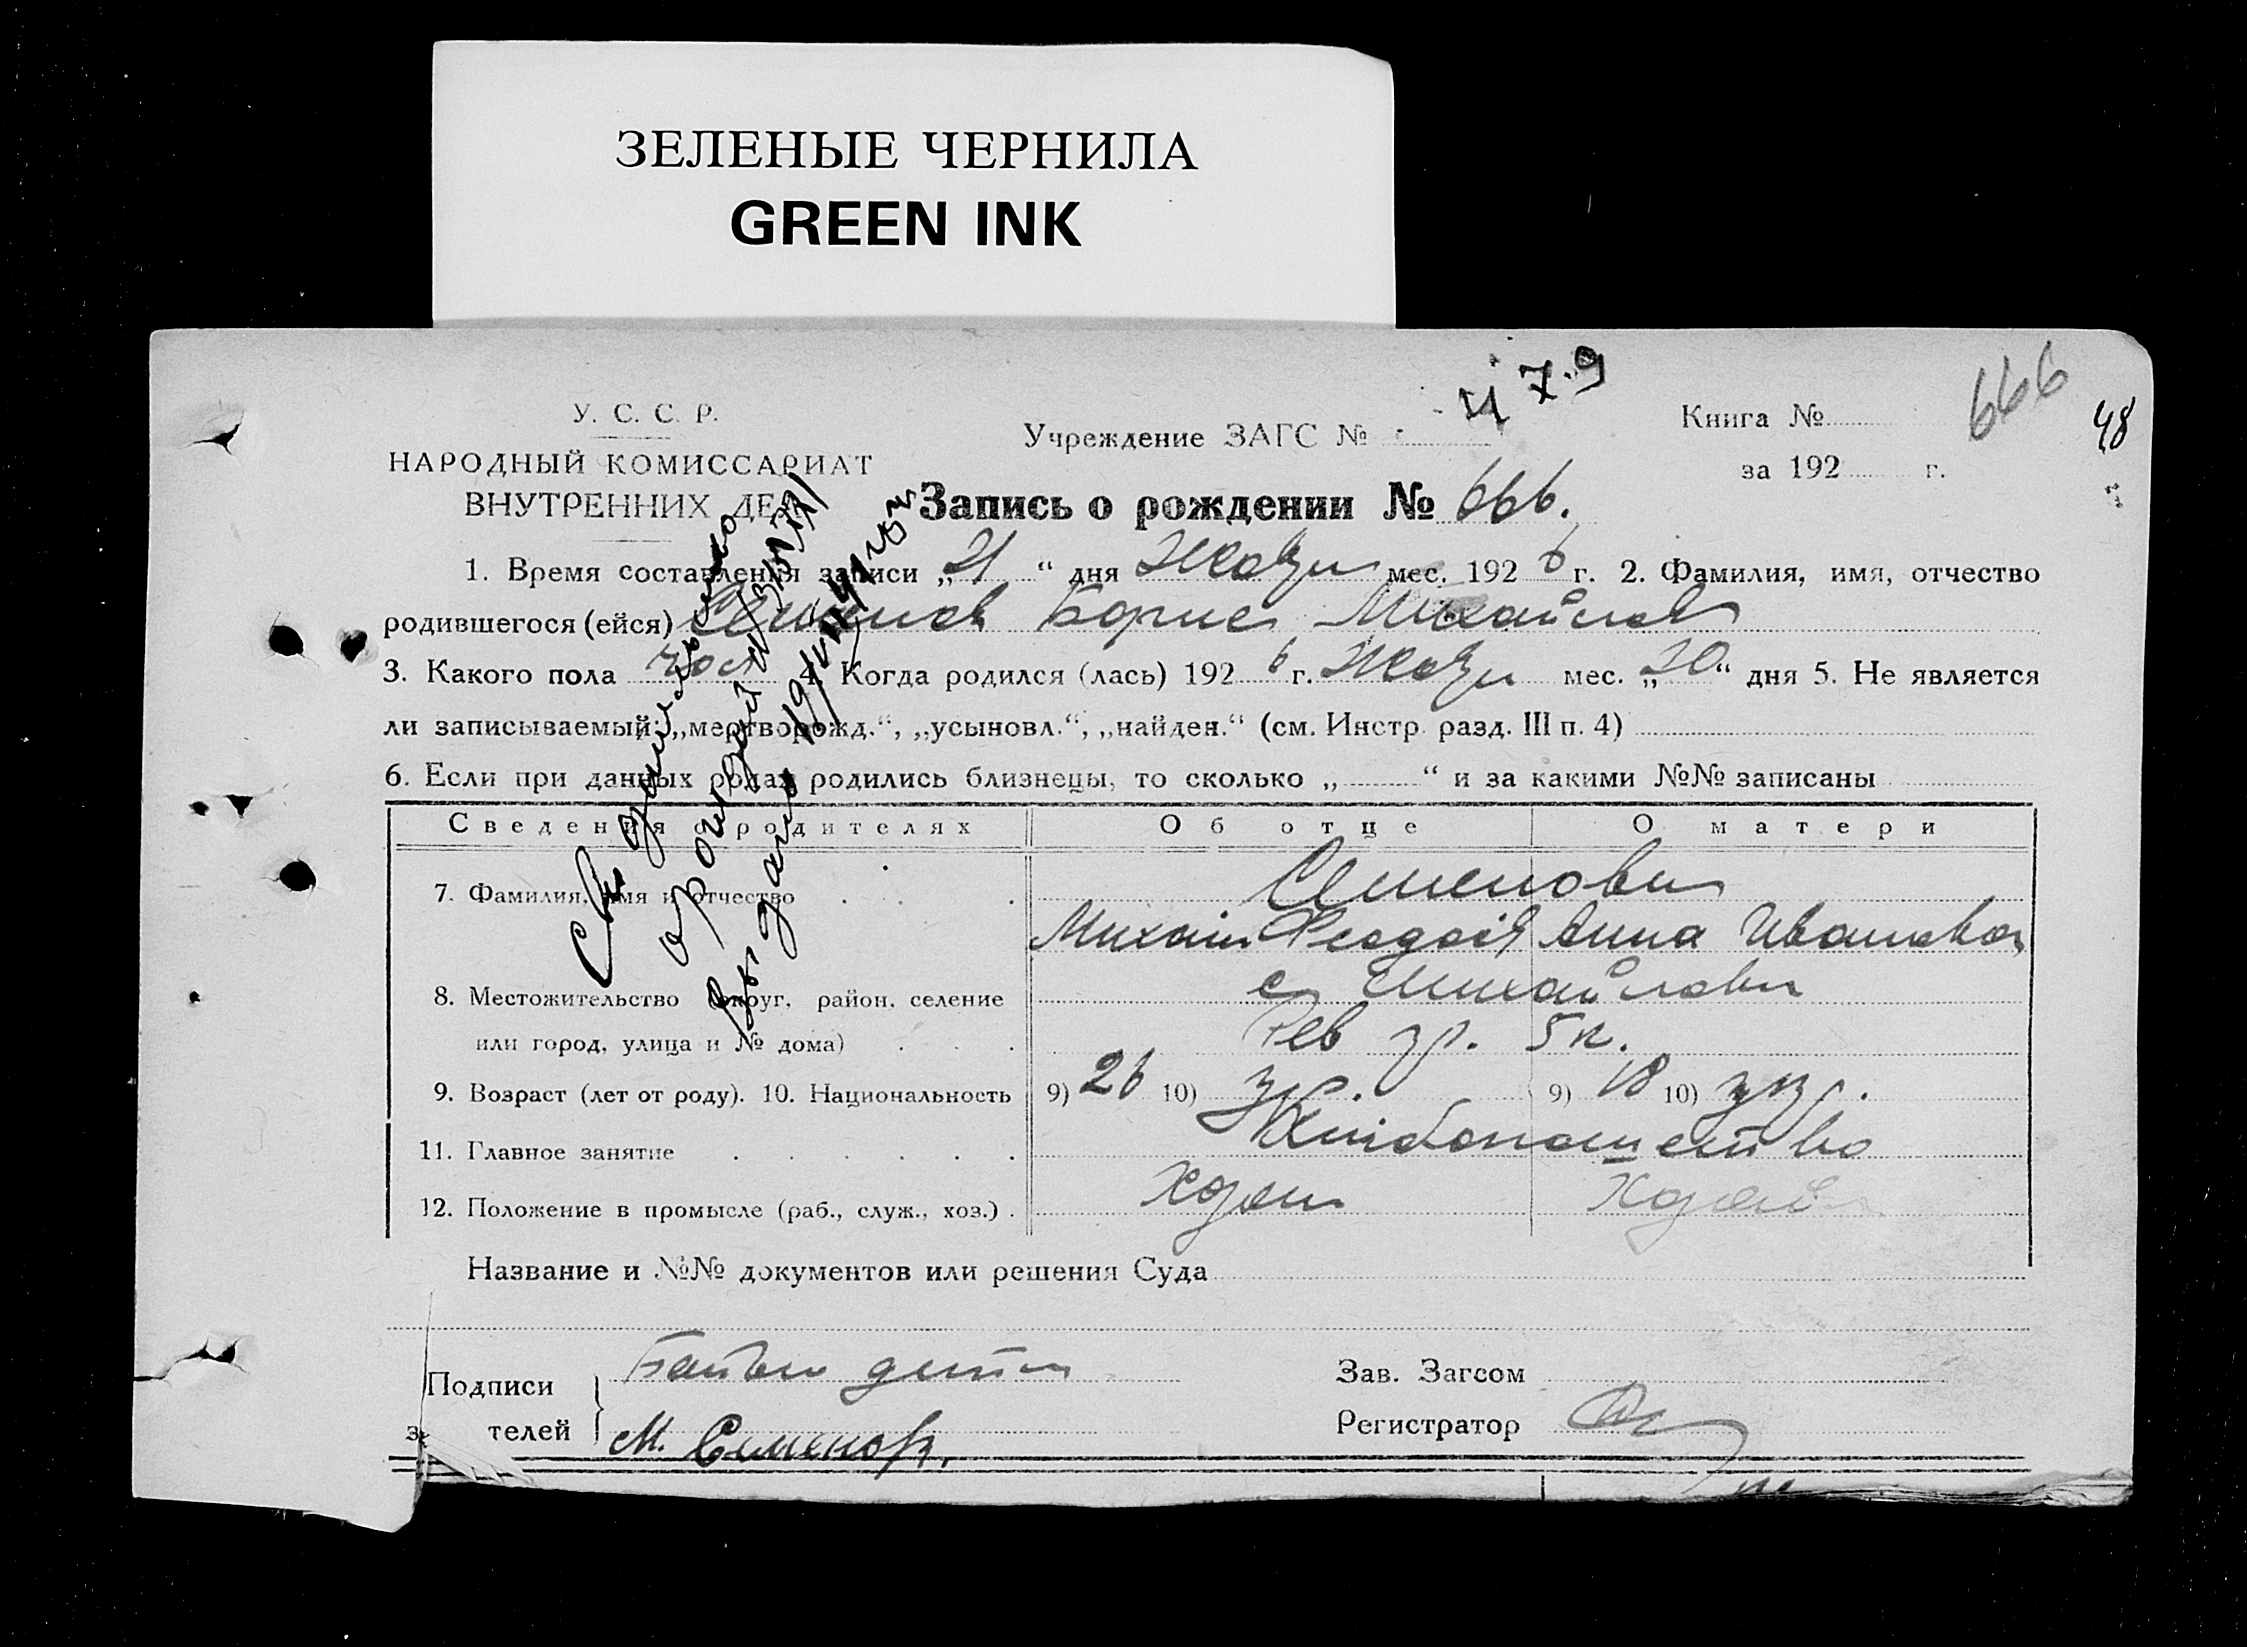 ЗЕЛЕНЫЕ ЧЕРНИЛА
GREEN INK
479
666
48
У. С. С. Р.
НАРОДНЫЙ КОМИССАРИАТ
ВНУТРЕННИХ ДЕЛ
Учреждение ЗАГС №
Книга №
за 192 г.
Запись о рождении № 666.
1. Время составления записи „21“ дня мес. 1926 г. 2. Фамилия, имя, отчество
родившегося (ейся) Семенов Борис Михайлов
3. Какого пола чол 4. Когда родился (лась) 1926 г. мес. „20“ дня 5. Не является
ли записываемый: „мертворожд.“, „усыновл.“, „найден.“ (см. Инстр. разд. III п. 4)
6. Если при данных родах родились близнецы, то сколько „ “ и за какими №№ записаны
Сведения о родителях Об отце О матери
7. Фамилия, имя и отчество Семенови
Михаил Феодос Анна Ивановна
8. Местожительство (округ, район, селение с Михайлови
или город, улица и № дома)
9. Возраст (лет от роду). 10. Национальность 9) 26 10) укр. 9) 18 10) укр.
11. Главное занятие Хлібопашество
12. Положение в промысле (раб., служ., хоз.) Хозяин
Название и №№ документов или решения Суда
Подписи Батько дитини
телей М. Семенов.
Зав. Загсом
Регистратор